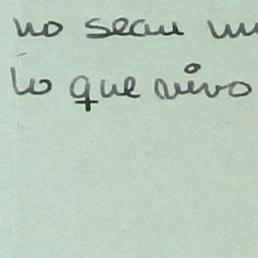 no sean
lo que vivo